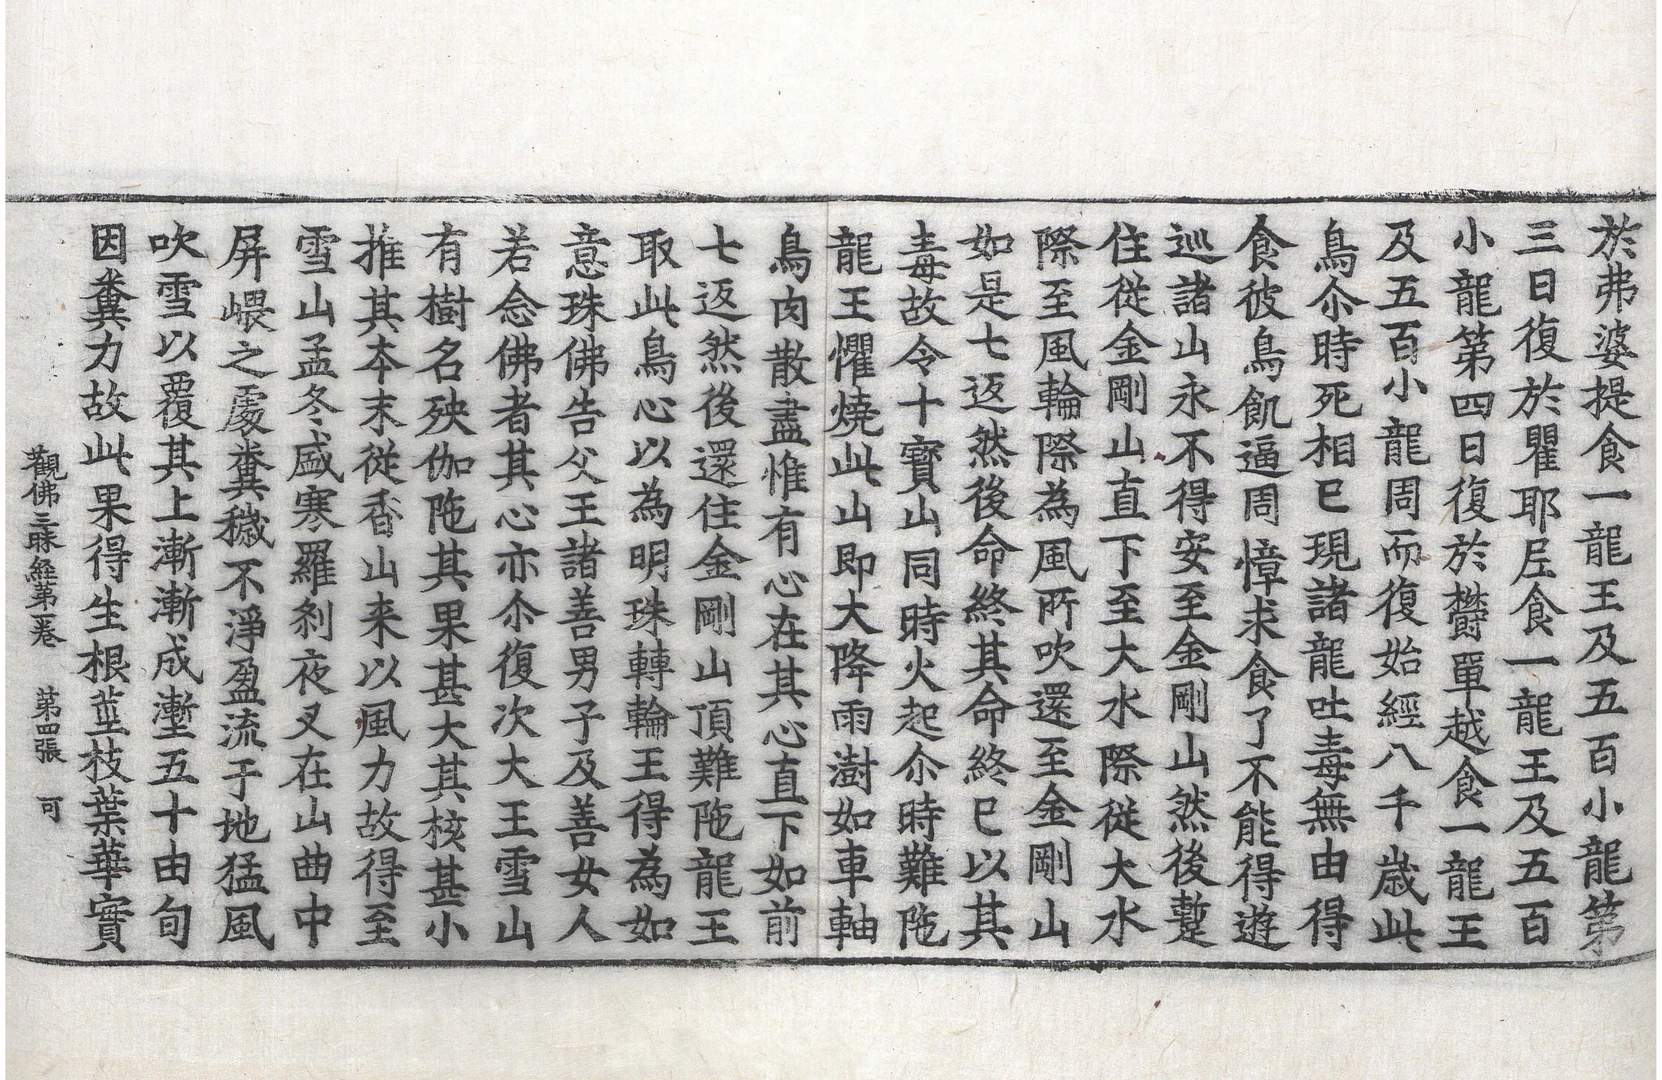 於弗婆提食一龍王及五百小龍第
三日復於瞿耶尼食一龍王及五百
小龍第四日復於欝單越食一龍王
及五百小龍周而復始經八千歲此
鳥尒時死相已現諸龍吐毒無由得
食彼鳥飢逼周慞求食了不能得遊
巡諸山永不得安至金剛山然後蹔
住從金剛山直下至大水際從大水
際至風輪際為風所吹還至金剛山
如是七返然後命終其命終已以其
毒故令十寶山同時火起尒時難陁
龍王懼燒此山即大降雨澍如車軸
鳥肉散盡惟有心在其心直下如前
七返然後還住金剛山頂難陁龍王
取此鳥心以為明珠轉輪王得為如
意珠佛告父王諸善男子及善女人
若念佛者其心亦尒復次大王雪山
有樹名殃伽陁其果甚大其核甚小
推其本末從香山来以風力故得至
雪山孟冬盛寒羅刹夜叉在山曲中
屏嵔之處糞穢不淨盈流于地猛風
吹雪以覆其上漸漸成壍五十由旬
因糞力故此果得生根莖枝葉華實
觀佛三昧經第一卷　第四張　可